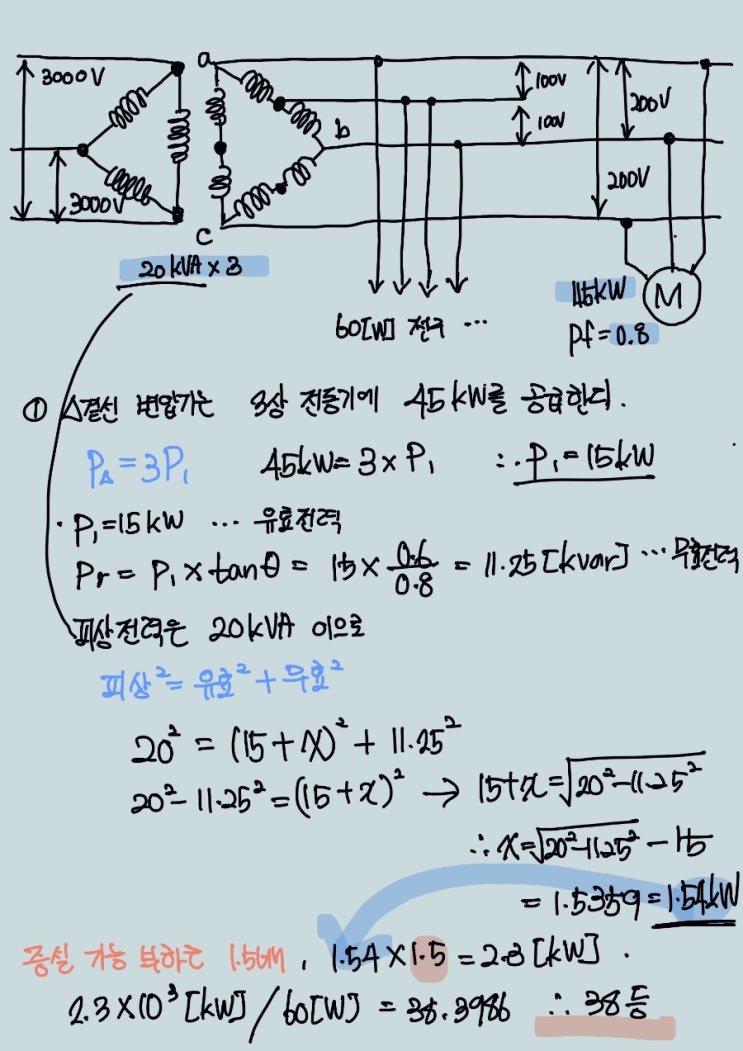 3000V
3000V
a
b
c
100V
100V
200V
200V
20kVA × 3
60[W] 전구 ...
45kW
M
Pf = 0.8
① △결선 변압기는 3상 전동기에 45kW를 공급한다.
P△ = 3P₁ 45kW = 3 × P₁ ∴ P₁ = 15kW
· P₁ = 15kW ... 유효전력
Pr = P₁ × tanθ = 15 × 0.6/0.8 = 11.25[kvar] ... 무효전력
피상전력은 20kVA 이므로
피상² = 유효² + 무효²
20² = (15+x)² + 11.25²
20² - 11.25² = (15+x)² → 15+x = √20²-11.25²
∴ x = √20²-11.25² - 15
= 1.5359 = 1.54kW
증설 가능 부하는 1.5배, 1.54 × 1.5 = 2.3[kW].
2.3 × 10³[kW] / 60[W] = 38.3986 ∴ 38등